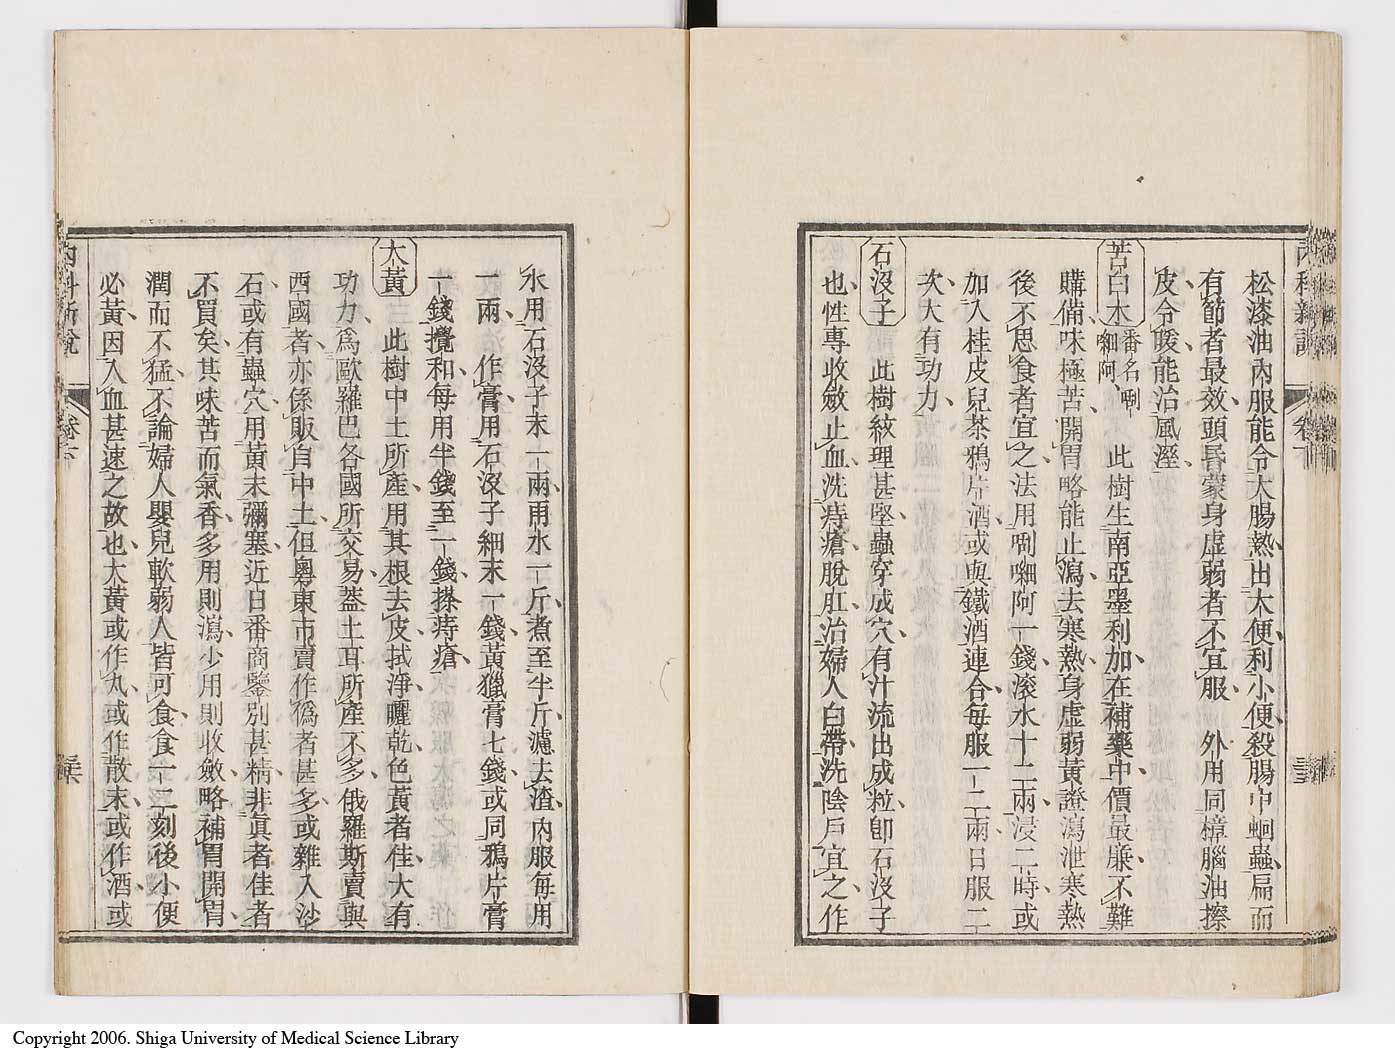 松漆油內服能令大腸熱出大便利小便殺腸中蛔蟲扁而
有節者最效頭昏蒙身虛弱者不宜服 外用同樟腦油擦
皮令暖能治風溼
苦白木 番名唎㘓阿 此樹生南亞墨利加在補藥中價最廉不難
購備味極苦開胃略能止瀉去寒熱身虛弱黃證瀉泄寒熱
後不思食者宜之法用唎㘓阿一錢滚水十二兩浸二時或
加入桂皮兒茶鴉片酒或與鐵酒連合每服一二兩日服二
次大有功力
石沒子 此樹紋理甚堅蟲穿成穴有汁流出成粒卽石沒子
也性專收斂止血洗痔瘡脫肛治婦人白帶洗陰戶宜之作
水用石沒子末一兩雨水一斤煮至半斤濾去渣內服每用
一兩 作膏用石沒子細末一錢黃獵膏七錢或同鴉片膏
一錢攪和每用半錢至一錢搽痔瘡
大黃 此樹中土所產用其根去皮拭淨曬乾色黃者佳大有
功力為歐羅巴各國所交易蓋土耳所產不多俄羅斯賣與
西國者亦係販自中土但粵東市賣作僞者甚多或雜入沙
石或有蟲穴用黃末彌塞近日番商鑒別甚精非眞者佳者
不買矣其味苦而氣香多用則瀉少用則收斂略補胃開胃
潤而不猛不論婦人嬰兒軟弱人皆可食食一二刻後小便
必黃因入血甚速之故也大黃或作丸或作散末或作酒或
內科新說
卷下
Copyright 2006. Shiga University of Medical Science Library